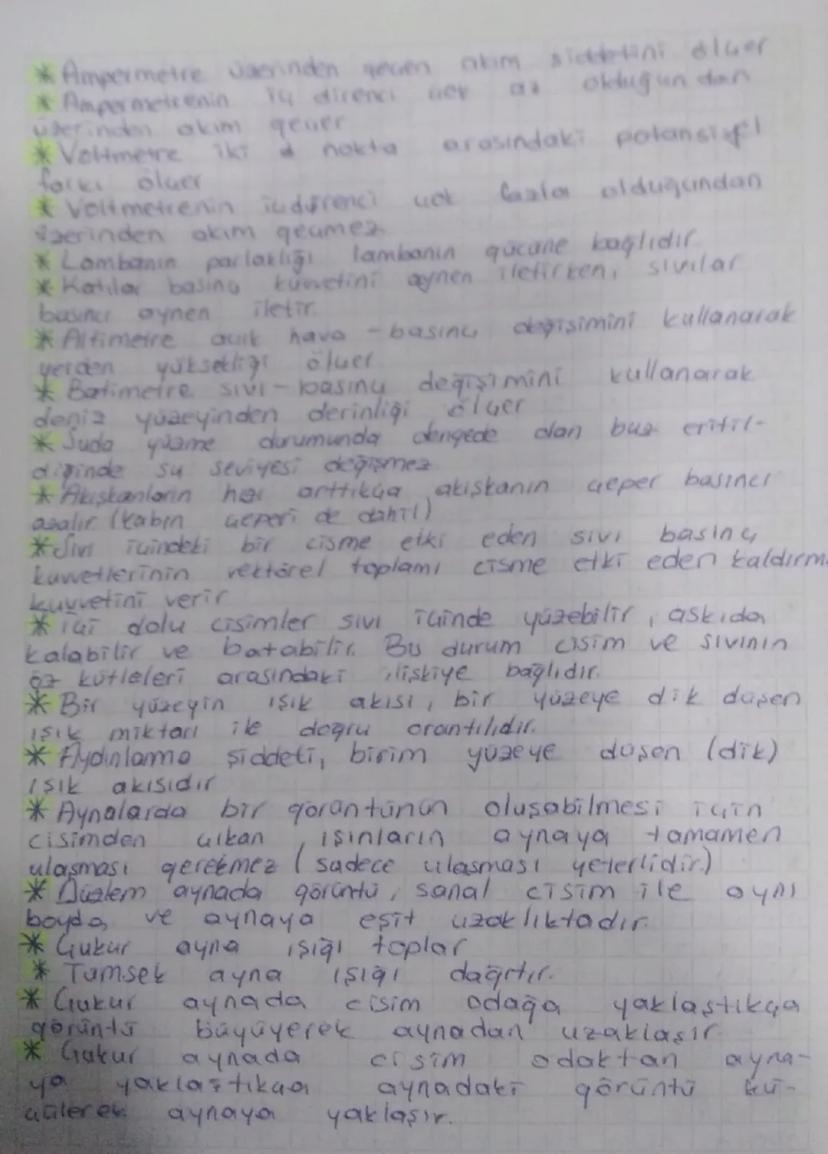 * Ampermetre üzerinden geçen akım şiddetini ölçer
* Ampermetrenin iç direnci çok az olduğundan
üzerinden akım geçer
* Voltmetre iki nokta arasındaki potansiyel
farkı ölçer
* Voltmetrenin iç direnci çok fazla olduğundan
üzerinden akım geçmez.
* Lambanın parlaklığı lambanın gücüne bağlıdır.
* Katılar basınç kuvvetini aynen iletirken, sıvılar
basıncı aynen iletir.
* Altimetre açık hava - basınç değişimini kullanarak
yerden yüksekliği ölçer
* Batimetre sıvı - basınç değişimini kullanarak
deniz yüzeyinden derinliği ölçer
* Suda yüzme durumunda dengede olan buz eritil-
diğinde su seviyesi değişmez
* Akışkanların hızı arttıkça akışkanın çeper basıncı
azalır (kabın çeperi de dahil)
* Sıvı içindeki bir cisme etki eden sıvı basınç
kuvvetlerinin vektörel toplamı cisme etki eden kaldırma
kuvvetini verir
* içi dolu cisimler sıvı içinde yüzebilir, askıda
kalabilir ve batabilir. Bu durum cisim ve sıvının
öz kütleleri arasındaki ilişkiye bağlıdır.
* Bir yüzeyin ışık akısı, bir yüzeye dik düşen
ışık miktarı ile doğru orantılıdır.
* Aydınlanma şiddeti, birim yüzeye düşen (dik)
ışık akısıdır
* Aynalarda bir görüntünün oluşabilmesi için
cisimden çıkan ışınların aynaya tamamen
ulaşması gerekmez (sadece ulaşması yeterlidir.)
* Düzlem aynada görüntü, sanal cisim ile aynı
boyda ve aynaya eşit uzaklıktadır.
* Çukur ayna ışığı toplar
* Tümsek ayna ışığı dağıtır.
* Çukur aynada cisim odağa yaklaştıkça
görüntü büyüyerek aynadan uzaklaşır.
* Çukur aynada cisim odaktan ayna-
ya yaklaştıkça aynadaki görüntü kü-
çülerek aynaya yaklaşır.